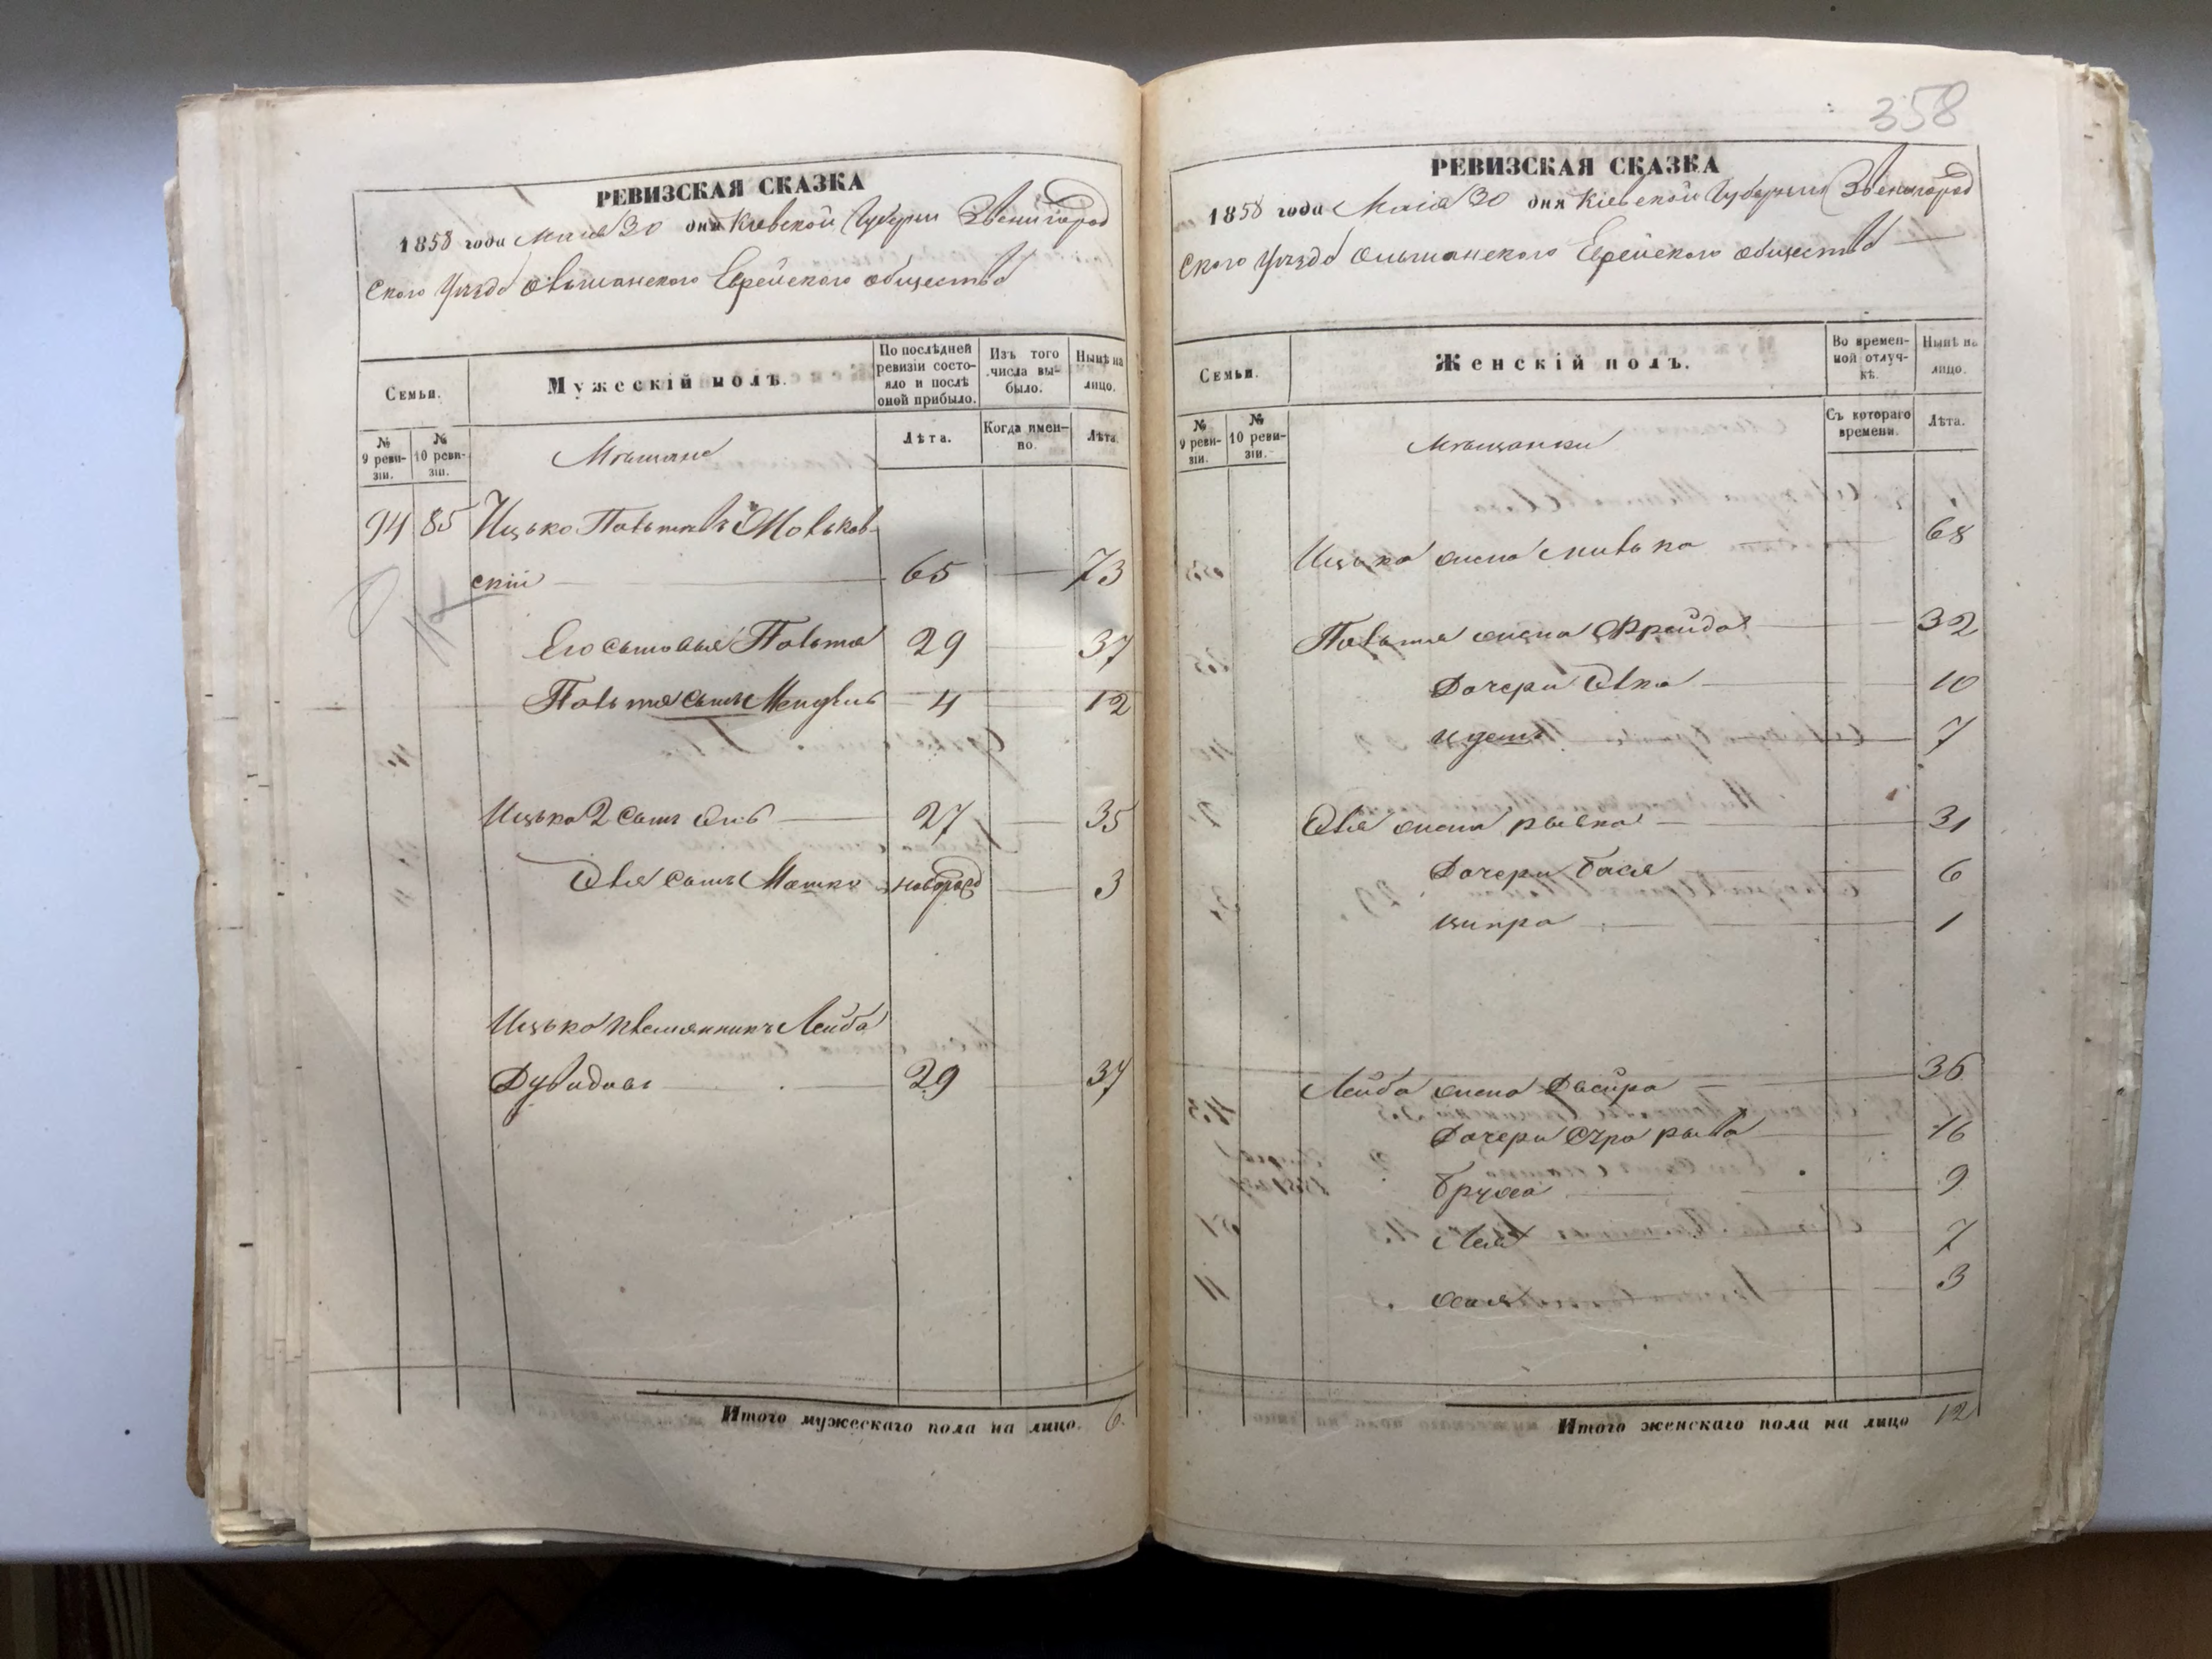 РЕВИЗСКАЯ СКАЗКА
1858 года Маія 30 дня Кіевской Губерніи Звенигород
ского Уѣзда Ольшанского Еврейского общества
Семьи.
Мужескій полъ.
По послѣдней ревизіи состояло и послѣ оной прибыло.
Изъ того числа выбыло.
Нынѣ на лицо.
№ 9 ревизіи.
№ 10 ревизіи.
Мѣщане
Лѣта.
Когда именно.
Лѣта.
94 85 Ицько Пальтевъ
скій 65 73
Его сыновья Пальтя 29 37
Пальтя сынъ Мендель 4 12
Ицька 2 сынъ 27 35
сынъ Мошко новорожд 3
Ицька племянникъ Лейба
Дувидовъ 29 37
Итого мужескаго пола на лицо. 6.
358
РЕВИЗСКАЯ СКАЗКА
1858 года Маія 30 дня Кіевской Губерніи Звенигород
ского Уѣзда Ольшанского Еврейского общества
Семьи.
Женскій полъ.
Во временной отлучкѣ.
Нынѣ на лицо.
№ 9 ревизіи.
№ 10 ревизіи.
Мѣщанки
Съ котораго времени.
Лѣта.
Ицька жена 68
Пальтя жена Фрейда 32
Дочери 10
7
жена Рывка 31
Дочери Бася 6
Ципра 1
Лейба жена Двейра 36
Дочери 16
Бруха 9
Лея 7
3
Итого женскаго пола на лицо 12